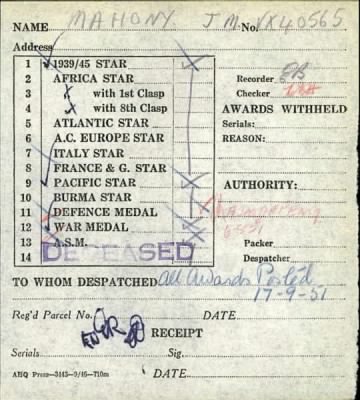 NAME MAHONY J M No. VX40565
Address
1 1939/45 STAR
2 AFRICA STAR
3 with 1st Clasp
4 with 8th Clasp
5 ATLANTIC STAR
6 A.C. EUROPE STAR
7 ITALY STAR
8 FRANCE & G. STAR
9 PACIFIC STAR
10 BURMA STAR
11 DEFENCE MEDAL
12 WAR MEDAL
13 A.S.M.
14
DECEASED
Recorder
Checker
AWARDS WITHHELD
Serials:
REASON:
AUTHORITY:
Packer
Despatcher
TO WHOM DESPATCHED all Awards Posted
17-9-51
Reg'd Parcel No. DATE
RECEIPT
Serials Sig.
AHQ Press—3443—9/49—710m DATE